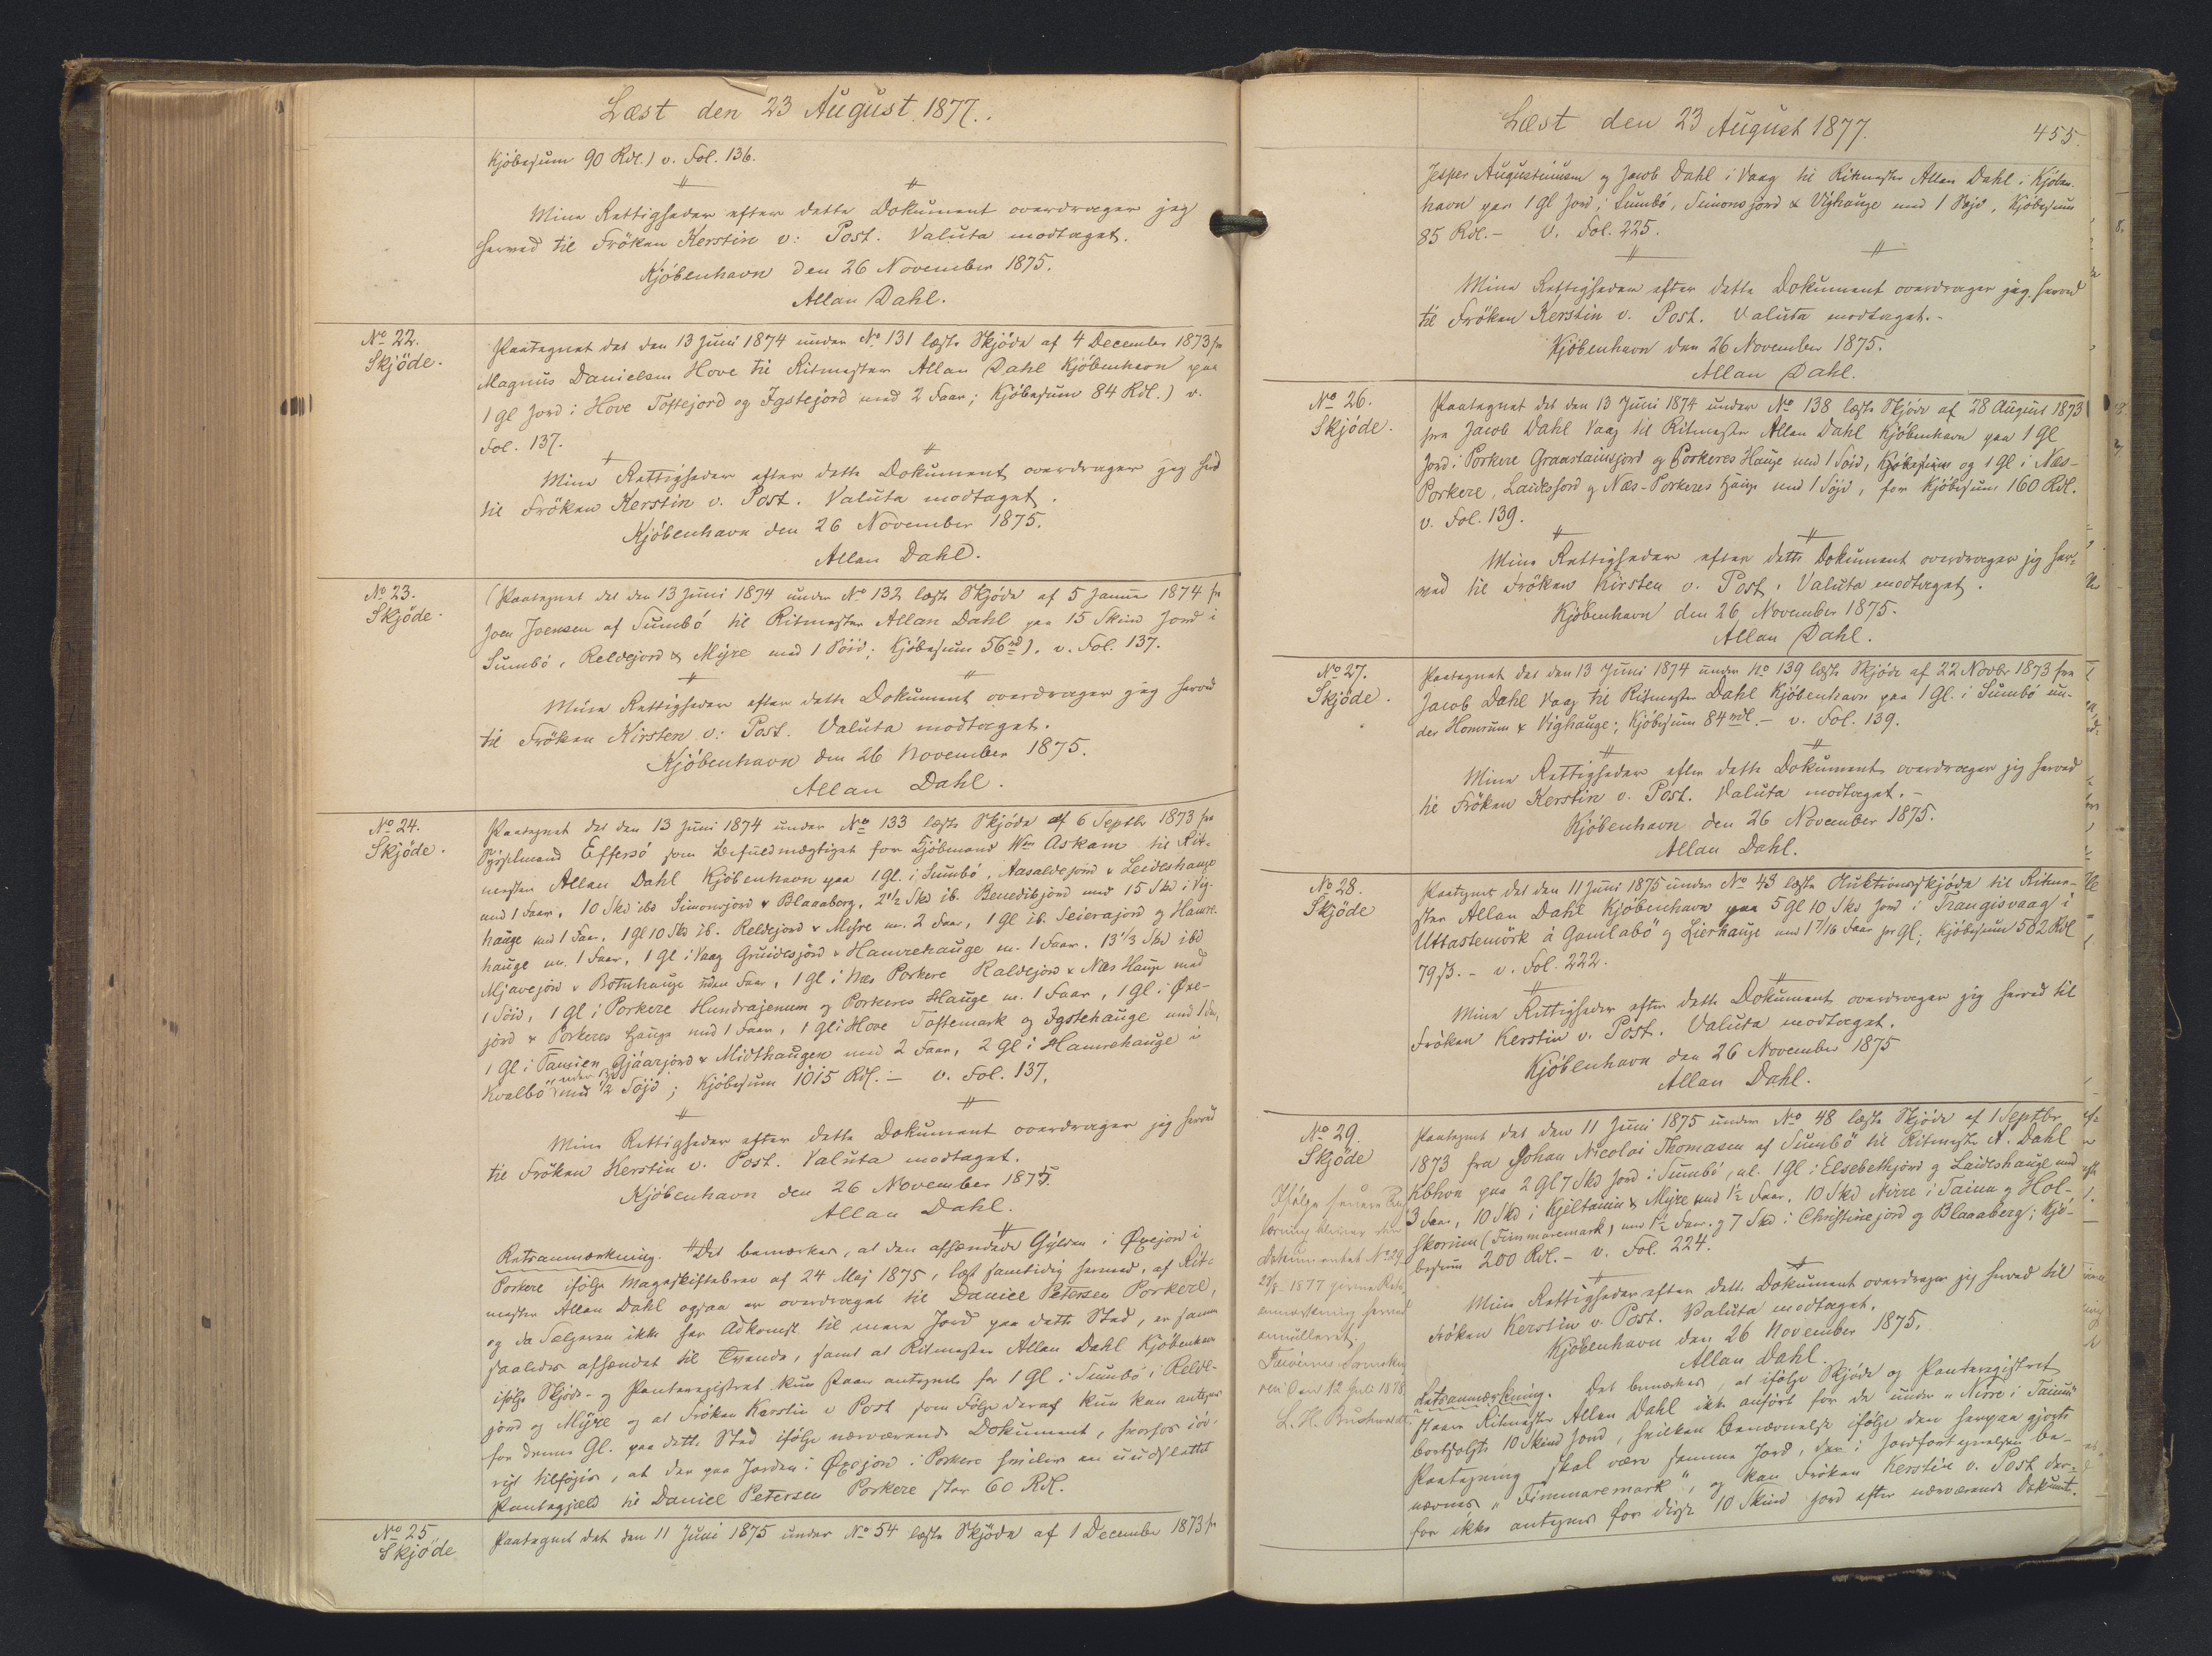 Læst den 23 August 1877.
Kjöbesum 90 Rdl.) v. Fol. 136.
Mine Rettigheder efter dette Dokument overdrager jeg
herved til Fröken Kerstin v: Post. Valuta modtaget.
Kjöbenhavn den 26 November 1875.
Allan Dahl.
No 22.
Skjöde.
Paategnet det den 13 Juni 1874 under No 131 læste Skjöde af 4 December 1873 fra
Magnus Danielsen Hove til Ritmester Allan Dahl Kjöbenhavn paa
1 Gl Jord i Hove Toftejord og Igstejord med 2 Faar; Kjöbesum 84 Rdl.) v.
Fol. 137.
Mine Rettigheder efter dette Dokument overdrager jeg
til Fröken Kerstin v. Post. Valuta modtaget.
Kjöbenhavn den 26 November 1875.
Allan Dahl.
No 23.
Skjöde.
(Paategnet det den 13 Juni 1874 under No 132 læste Skjöde af 5 Januar 1874 fra
Joen Joensen af Sumbö til Ritmester Allan Dahl paa 15 Skind Jord i
Sumbö, Reldejord & Myre med 1 Söid; Kjöbesum 56 rd). v. Fol. 137.
Mine Rettigheder efter dette Dokument overdrager jeg herved
til Fröken Kirsten v: Post. Valuta modtaget.
Kjöbenhavn den 26 November 1875.
Allan Dahl.
No 24.
Skjöde.
Paategnet det den 13 Juni 1874 under No 133 læste Skjöde af 6 Septbr 1873 fra
Sysselmand Effersö som befuldmægtiget for Kjöbmand Wm Askam til Rit-
mester Allan Dahl Kjöbenhavn paa 1 Gl. i Sumbö, Aasaldejord & Leideshauge
med 1 Faar, 10 Skd ibd Simonsjord & Blaaaborg, 2 1/2 Skd ib. Benediksjord med 15 Skd i Vig-
hauge med 1 Faar, 1 Gl 10 Skd ib. Reldejord & Myre m. 2 Faar, 1 Gl ib. Seierajord og Hamre-
hauge m. 1 Faar, 1 Gl i Vaag Gruidesjord & Hamrehauge m. 1 Faar. 13 1/3 Skd ibd
Mjavejord & Botnhauge uden Faar, 1 Gl i Næs Porkere Raldejord & Næs Hauge med
1 Söid, 1 Gl i Porkere Hundrajenum og Porkeres Hauge m. 1 Faar, 1 Gl. i Öxe-
jord & Porkeres Hauge med 1 Faar, 1 Gl i Hove Toftemark og Igstehauge med 1
1 Gl i Tansien Gjáarjord & Midthaugen med 2 Faar, 2 Gl i Hamrehauge i
Kvalbö med 1/2 Söjd; Kjöbesum 1015 Rdl. – v. Fol. 137.
Mine Rettigheder efter dette Dokument overdrager jeg herved
til Fröken Kerstin v. Post. Valuta modtaget.
Kjöbenhavn den 26 November 1875.
Allan Dahl.
Retsanmærkning. Det bemærkes, at den afhændede Gylden i Öxejord i
Porkere ifölge Mageskiftebrev af 24 Maj 1875, læst samtidig hermed, af Rit-
mester Allan Dahl ogsaa er overdraget til Daniel Petersen Porkere,
og da Sælgeren ikke har Adkomst til mere Jord paa dette Sted, er samme
saaledes afhændet til Tvende, samt at Ritmester Allan Dahl Kjöbenhavn
ifölge Skjöde- og Panteregistret kun staar antegnet for 1 Gl i Sumbö i Relde-
jord og Myre og at Fröken Kerstin v Post som Fölge deraf kun kan antegnes
for denne Gl. paa dette Sted ifölge nærværende Dokument, hvorhos iöv-
rigt tilföjes, at der paa Jorden i Öxejord i Porkere hviler en uudslettet
Pantegjæld til Daniel Petersen Porkere stor 60 Rdl.
No 25
Skjöde
Paategnet det den 11 Juni 1875 under No 54 læste Skjöde af 1 December 1873 fra
Læst den 23 August 1877.
455.
Jesper Augustinussen og Jacob Dahl i Vaag til Ritmester Allan Dahl i Kjöben-
havn paa 1 Gl Jord i Sumbö, Simonsjord & Vighauge med 1 Söjd, Kjöbesum
85 Rdl. – v. Fol. 225.
Mine Rettigheder efter dette Dokument overdrager jeg herved
til Fröken Kerstin v. Post. Valuta modtaget. –
Kjöbenhavn den 26 November 1875.
Allan Dahl.
No 26.
Skjöde.
Paategnet det den 13 Juni 1874 under No 138 læste Skjöde af 28 August 1873
fra Jacob Dahl Vaag til Ritmester Allan Dahl Kjöbenhavn paa 1 Gl
Jord i Porkere Graastainsjord og Porkeres Hauge med 1 Söid, og 1 Gl i Næs-
Porkere, Laidesjord og Næs-Porkeres Hauge med 1 Söjd, for Kjöbesum 160 Rdl.
v. Fol. 139.
Mine Rettigheder efter dette Dokument overdrager jeg her-
ved til Fröken Kirsten v. Post, Valuta modtaget.
Kjöbenhavn den 26 November 1875.
Allan Dahl.
No 27.
Skjöde.
Paategnet det den 13 Juni 1874 under No 139 læste Skjöde af 22 Novbr 1873 fra
Jacob Dahl Vaag til Ritmester Dahl Kjöbenhavn paa 1 Gl. i Sumbö un-
der Homrum & Vighauge; Kjöbesum 84 rdl. – v. Fol. 139.
Mine Rettigheder efter dette Dokument overdrager jeg herved
til Fröken Kerstin v. Post. Valuta modtaget. –
Kjöbenhavn den 26 November 1875.
Allan Dahl.
No 28.
Skjöde
Paategnet det den 11 Juni 1875 under No 43 læste Auktionsskjöde til Ritme-
ster Allan Dahl Kjöbenhavn paa 5 Gl 10 Skd Jord i Trangisvaag i
Uttastemörk á Gamlabö og Lierhauge med 1 7/16 Faar pr Gl; Kjöbesum 582 Rdl
79 ß. – v. Fol. 222.
Mine Rettigheder efter dette Dokument overdrager jeg herved til
Fröken Kerstin v. Post. Valuta modtaget.
Kjöbenhavn den 26 November 1875
Allan Dahl.
No 29.
Skjöde
Paategnet det den 11 Juni 1875 under No 48 læste Skjöde af 1 Septbr
1873 fra Johan Nicolai Thomasen af Sumbö til Ritmester A. Dahl
Kbhvn paa 2 Gl 7 Skd Jord i Sumbö, al. 1 Gl i Elsebethjord og Laideshauge med
3 Faar, 10 Skd i Kjeltainin & Myre med 1 1/2 Faar, 10 Skd Nirre i Tainn og Hol-
skorinn (Fimmaremark) med 1 1/2 Faar og 7 Skd i Christinejord og Blaaaberg; Kjö-
besum 200 Rdl. – v. Fol. 224.
Mine Rettigheder efter dette Dokument overdrager jeg herved til
Fröken Kerstin v. Post. Valuta modtaget.
Kjöbenhavn den 26 November 1875.
Allan Dahl.
Retsanmærkning. Det bemærkes, at ifölge Skjöde og Panteregistret
staar Ritmester Allan Dahl ikke anfört for de under "Nirre i Tainn"
bortsolgte 10 Skind Jord, hvilken Benævnelse ifölge den herpaa gjorte
Paategning skal være samme Jord, der i Jordfortegnelsen be-
nævnes "Fimmaremark", og kan Fröken Kerstin v. Post der-
for ikke antegnes for disse 10 Skind Jord efter nærværende Dokument.
Ifölge senere
bliver den
Dokumentet No 29
23/8 1877 givne Rets-
anmærkning herved
annulleret.
Færöernes Sorenskri-
veri den 12 Juli 1878.